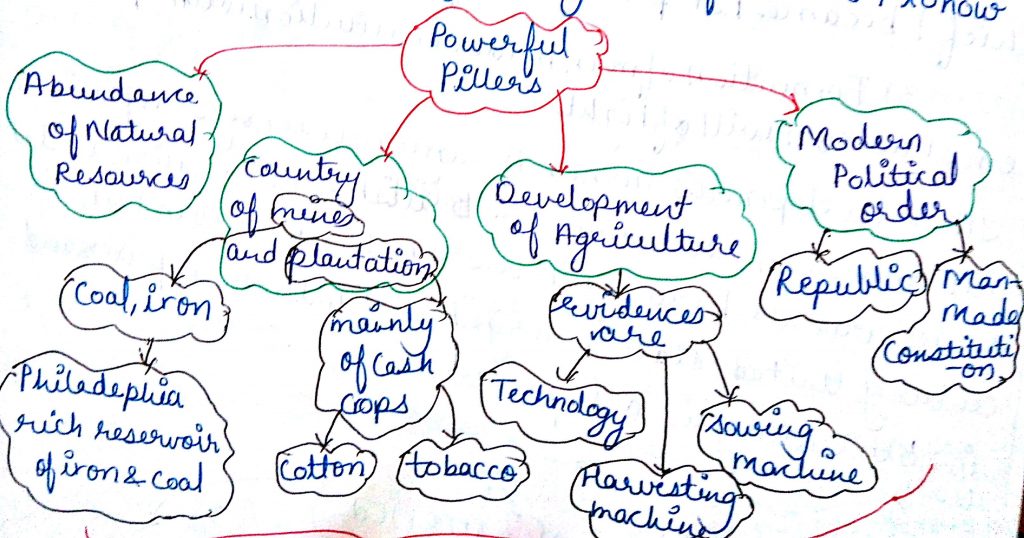 Powerful
Pillers
Abundance
of Natural
Resources
Country
of mines
and plantation
Development
of Agriculture
Modern
Political
order
Coal, iron
mainly
of Cash
Crops
evidences
are
Republic
Man-
Made
Constituti
-on
Philadephia
rich reservoir
of iron & coal
Cotton
tobacco
Technology
Harvesting
machine
sowing
machine